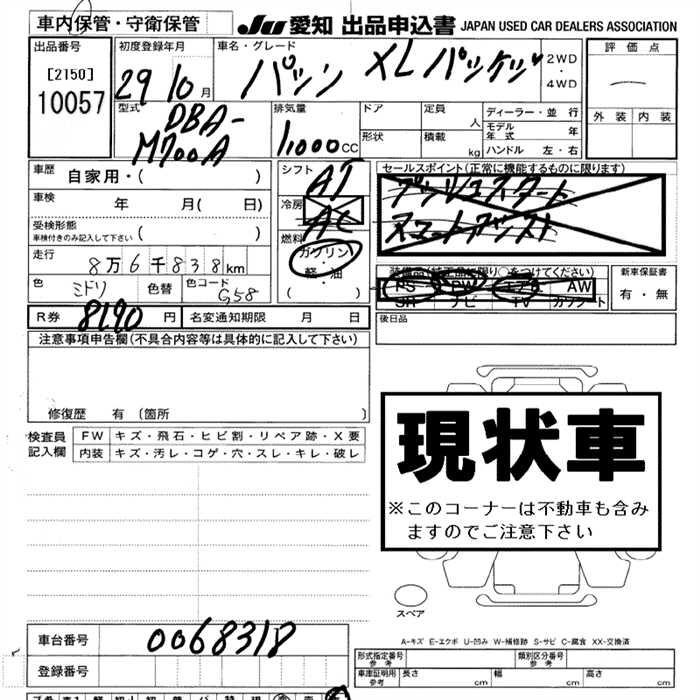 車内保管・守衛保管 JU 愛知 出品申込書 JAPAN USED CAR DEALERS ASSOCIATION
出品番号 初度登録年月 車名・グレード 2WD ・ 4WD 評価点
[2150] 29 10月 パッソ XL パッケージ
10057 ー
型式 DBA-M700A 排気量 1,000cc ドア 定員 人 ディーラー・並行 外装 内装
形状 積載 kg モデル年式 年
ハンドル 左・右
車歴 自家用・( ) シフト AT セールスポイント(正常に機能するものに限ります)
車検 年 月( 日) 冷房 AC プッシュスタート
受検形態 車検付きのみ記入して下さい ( ) スマートアシスト
走行 8万6千838km 燃料 ガソリン・軽・油 ( )
装備品(純正品に限り○をつけてください) 新車保証書
色 ミドリ 色替 色コード G58 PS PW エアB AW 有・無
SR ナビ TV カワシート
R券 8190円 名変通知期限 月 日 後日品
注意事項申告欄(不具合内容等は具体的に記入して下さい)
修復歴 有 (箇所 )
検査員記入欄 FW キズ・飛石・ヒビ割・リペア跡・X要
内装 キズ・汚レ・コゲ・穴・スレ・キレ・破レ
現状車
※このコーナーは不動車も含み
ますのでご注意下さい
スペア
A-キズ E-エクボ U-凹み W-補修跡 S-サビ C-腐食 XX-交換済
車台番号 0068318
登録番号
形式指定番号 参考 類別区分番号 参考
車庫証明用 参考 長さ cm 幅 cm 高さ cm